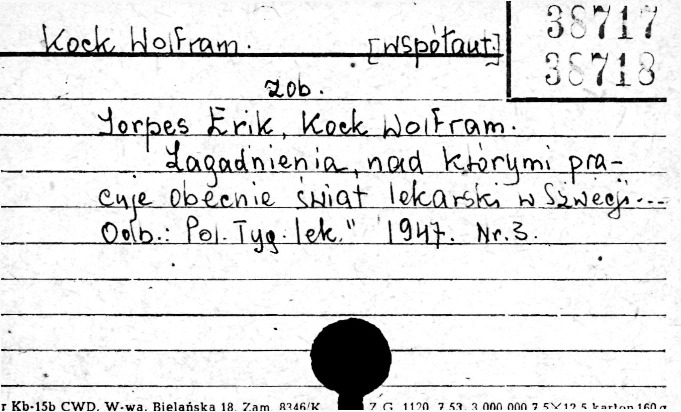 Kock Wolfram. [współaut.]
38717
38718
zob.
Jorpes Erik, Kock Wolfram.
Zagadnienia, nad którymi pra-
cuje obecnie świat lekarski w Szwecji...
Odb.: Pol. Tyg. lek." 1947. Nr. 3.
r Kb-15b CWD, W-wa, Bielańska 18. Zam. 8346/K. Z.G. 1120. 7.53. 3.000.000 7,5×12,5 karton 160 g